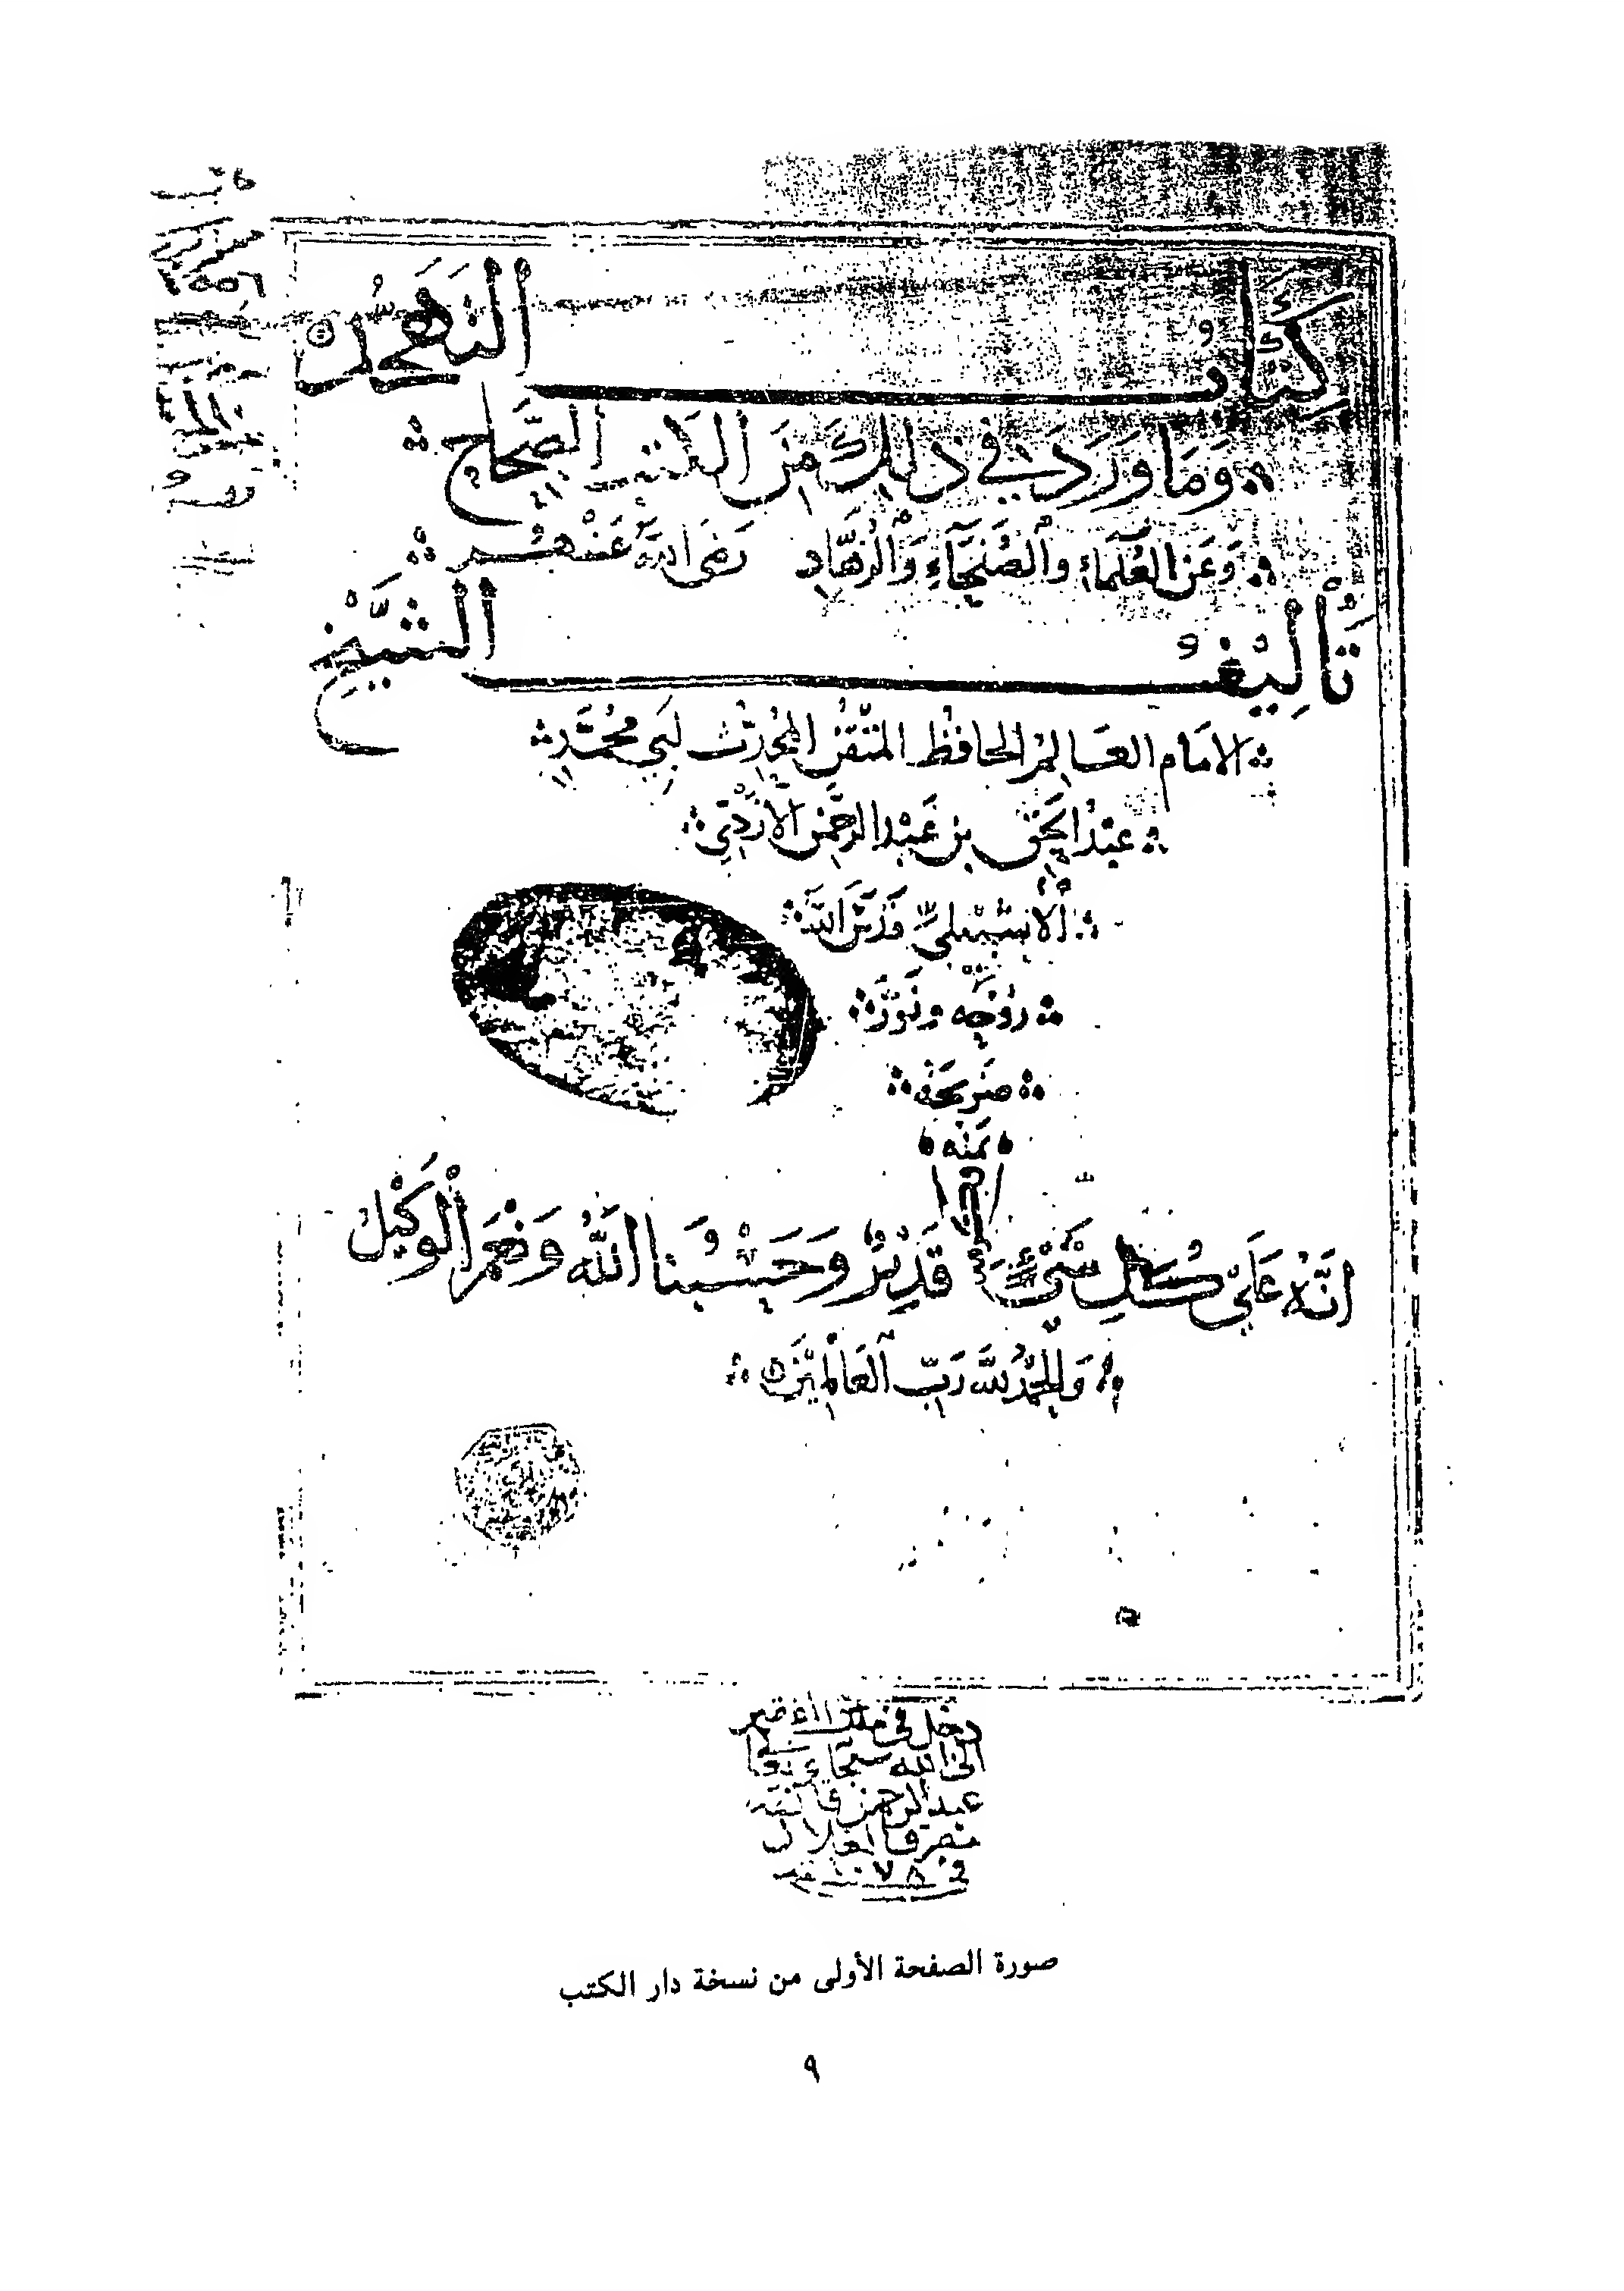 كِتَابُ التَّهَجُّدِ
وَمَا وَرَدَ فِي ذَلِكَ مِنَ الكتب الصِّحَاحِ
وَعَنِ العُلَمَاءِ وَالصُّلَحَاءِ وَالزُّهَّادِ رَضِيَ اللهُ عَنْهُمْ
تَأْلِيفُ الشَّيْخِ
الامَام العَالِمِ الحَافِظ المتْقِنُ المُحَدِّث أبي مُحَمَّد
عَبْد الحَقِّ بن عَبْد الرَّحْمَن الأَزْدِيِّ
الإشْبِيليِّ قَدَّسَ اللهُ
رُوْحَهُ وَنَوَّرَ
ضَرِيحَهُ
بمَنِّه
انَّهُ عَلَى كُلِّ شَيْءٍ قَدِيْرٌ وَحَسْبُنَا اللهُ وَنِعْمَ الْوَكِيْلُ
وَالحَمْدُ لله رَبِّ العَالَمِيْنَ
دخل في ملك
الى الله سبحانه
عبد الرحمن
في ١٠٧٨
صورة الصفحة الأولى من نسخة دار الكتب
٩